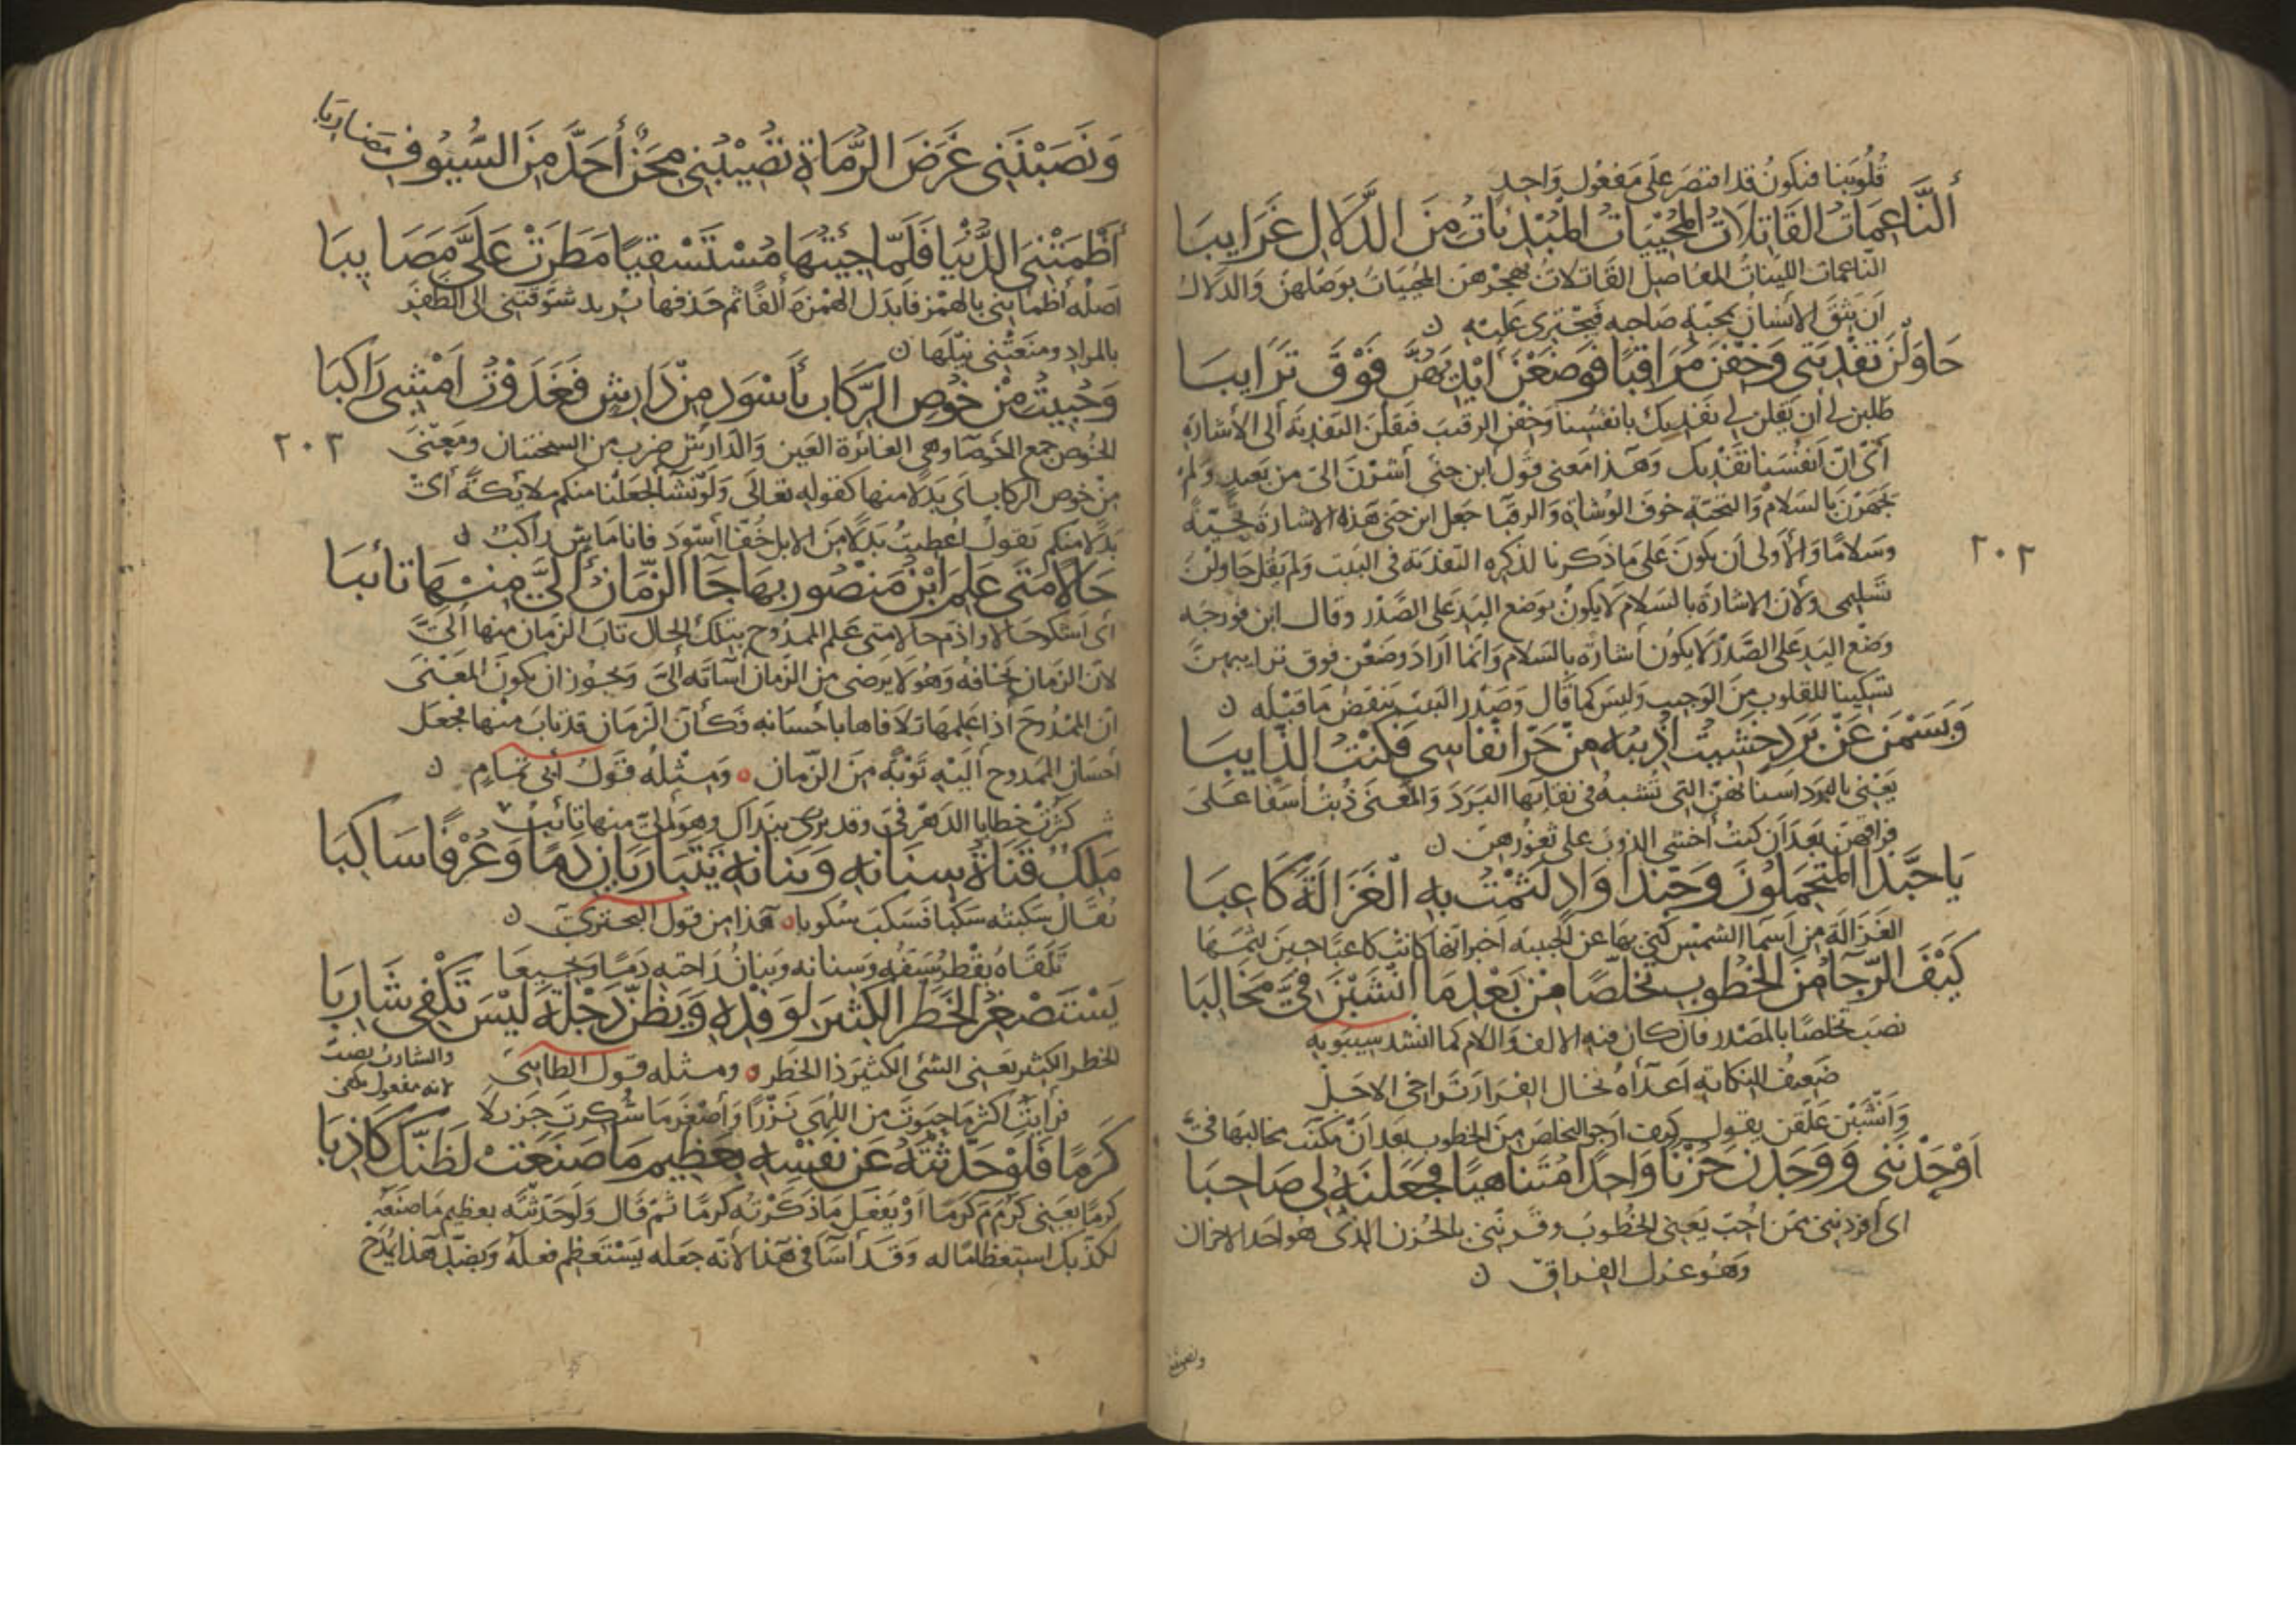 قُلُوبَنا فتكونُ قد اقتصَرَ عَلَى مَفعُول وَاحِدٍ
أَلنَّاعِمَاتُ القَاتِلَاتُ المُحْيِيَاتُ المُبْدِيَاتُ مِنَ الدَّلَالِ غَرَايِبَا
النّاعمات اللينات المفاصل القَاتلاتُ بهجرهن المحييَاتُ بوَصلهنّ وَالدلال
ان يَثقَ الانسَان بمحبّة صَاحبه فيَجْتَرِي عَلَيه ن
حَاوَلْنَ تَفْدِيَتِي وَخِفْنَ مُرَاقِبًا فَوَضَعْنَ أَيْدِيَهُنَّ فَوْقَ تَرَايِبَا
طلبن لي أن يَقلن لي نفديك بانفسنا وَخفن الرقيبَ فنقلنَ التفديَة الى الاشارة
أيْ انّ أنفسَنا تفْديك وَهَذا معنى قول ابن جنّي أشَرْنَ اليّ من بَعيدٍ وَلم
يَجْهَرْن بالسَلام وَالتحيّة خوفَ الوُشاة وَالرقبَا جعل ابن جنّي هَذه الاشارة تحيّة
وسَلامًا وَالأولى أن يكونَ عَلى مَا ذكرنا لذكره التفديَة في البَيت وَلم يَقل حَاولنَ
٢٠٢
تسليمي ولأن الاشارَة بالسَلام لَا يكونُ بوَضع اليَد عَلى الصَّدْر وقال ابن فورجه
وضْع اليَد عَلى الصَّدْر لا يكون أشارة بالسَلام وَانما أرَادَ وضَعْن فوق ترايبهنّ
تسكينا للقلوب مِنَ الوَجيب وَليسَ كما قَال وَصَدْر البَيت يَنقضُ مَا قبْله ن
وَبَسَمْنَ عَنْ بَرَدٍ خَشِيتُ أُذِيبُهُ مِنْ حَرِّ أَنْفَاسِي فَكُنْتُ الذَّايِبَا
يَعْني بالبرد اسنانهنّ التي تشبه في نقائها البَرَدَ وَالمعْنى ذُبتُ أسفًا عَلى
فراقهنّ بعدَ ان كنت أخشى الذوبَ على ثغورهنّ ن
يَا حَبَّذَا المُتَحَمِّلُونَ وَحَبَّذَا وَادٍ لَثَمْتُ بِهِ الغَزَالَةَ كَاعِبَا
الغزالة مِن أسمَا الشمْس كنى بها عن الحبيبة اخبر انها كانت كاعبًا حين لثمهَا
كَيْفَ الرَّجَاءُ مِنَ الخُطُوبِ تَخَلُّصًا مِنْ بَعْدِ مَا أَنْشَبْنَ فِيَّ مَخَالِبَا
نصَب تخلصًا بالمصْدر فان كان فيه الالف وَاللام كما انشد سيبَويه
ضَعيفُ النكَاية أعدَاءهُ يخال الفرَار يراخى الاجَلْ
وَأنشبْن علقن يقول كيف أرجو التخلصَ مِنَ الخطوب بعد أنْ مكّنّت مخالبَها فيَّ
أَوْحَدْنَنِي وَوَجَدْنَ حُزْنًا وَاحِدًا مُتَنَاهِيًا فَجَعَلْنَهُ لِي صَاحِبَا
اي أفردنني عمن أحبّ يَعني الخُطوبَ وقرنّني بالحُزن الذي هو أحَد الاحزان
وَهُوَ حزن الفراق ن
وَنَصَبْنَنِي غَرَضَ الرُّمَاةِ تُصِيبُنِي مِحَنٌ أَحَدُّ مِنَ السُّيُوفِ مَضَارِبَا
أَظْمَتْنِيَ الدُّنْيَا فَلَمَّا جِئْتُهَا مُسْتَسْقِيًا مَطَرَتْ عَلَيَّ مَصَايِبَا
أصله أظمأتني بالهمز فابدل الهمْزة ألفًا ثم حذفها يُريد شوّقتني الى الظفر
بالمراد ومنعَتْني نيْلَها ن
وَحُبِيتُ مِنْ خُوصِ الرِّكَابِ بِأَسْوَدٍ مِنْ دَارِشٍ فَغَدَوْتُ أَمْشِي رَاكِبَا
الخُوص جمع الخَوصَا وهي الغائرة العَين وَالدّارش ضرب من السختيان ومَعنى
٢٠٣
مِنْ خوص الركاب أي بَدَلا منها كقوله تعَالى وَلَوْ نشَا لجعَلنا منكم ملايكة أيْ
بَدلا منكم يَقول أعْطيتُ بَدلا من الابل خُفّا أسْوَدَ فانا مَاشٍ رَاكبٌ ن
حَالًا مَتَى عَلِمَ ابْنُ مَنْصُورٍ بِهَا جَا الزَّمَانُ إِلَيَّ مِنْهَا تَائِبَا
أي أشكو حَالا وَأذمّ حَالا متى عَلم المَمدُوح بتلك الحَال تابَ الزمَان منها إليّ
لأن الزمَان يَخَافهُ وَهُوَ لا يَرضى من الزمان اسَاءته إليّ وَيجُوز ان يكونَ المَعْنى
انّ المَمْدُوحَ اذا عَلمهَا تلافاهَا باحْسَانه فكأنّ الزمَان قد تابَ منْها فجعَل
احسَان الممدوح إليْه تَوْبَة مِنَ الزّمان ومثلُه قَولُ أبي تمام ن
كثُرتْ خطايا الدهْر فيّ وقد يُرى بنداك وهوَ اليّ منها تائبُ
مَلِكٌ سِنَانُ قَنَاتِهِ وَبَنَانُهُ يَتَبَارَيَانِ دَمًا وَعُرْفًا سَاكِبَا
يُقَال سَكبته سَكبًا فسَكبَ سُكوبا هَذا من قول البحتريّ ن
تَلْقَاهُ يَقْطُر سَيْفُه وَسنانه وَبنَانُ رَاحته دَمًا وَنجيعَا
يَسْتَصْغِرُ الخَطَرَ الكَثِيرَ لِوَفْدِهِ وَيَظُنُّ دِجْلَةَ لَيْسَ تَكْفِي شَارِبَا
الخطر الكثير يَعني الشئ الكثير ذا الخَطَر ومثله قول الطائي
والشارب نصبٌ
لانه مفعول تكفي
فرأيتُ أكثر مَا حبوتَ من اللُّهَى نَزْرًا وَأصْغَر مَا شُكرتَ جَزيلا
كَرَمًا فَلَوْ حَدَّثْتَهُ عَنْ نَفْسِهِ بِعَظِيمِ مَا صَنَعَتْ لَظَنَّكَ كَاذِبَا
كرمًا يَعْني كرُمَ كرَمًا أوْ يَفعَل مَا ذكرْته كرمًا ثمّ قال وَلو حَدّثتَه بعظيم مَا صنَعَ
لكذّبك استعظامًا له وَقَد أسَا في هَذا لأنّه جعَله يَسْتَعظم فعلَه وَبضدّ هَذا يُمْدَح